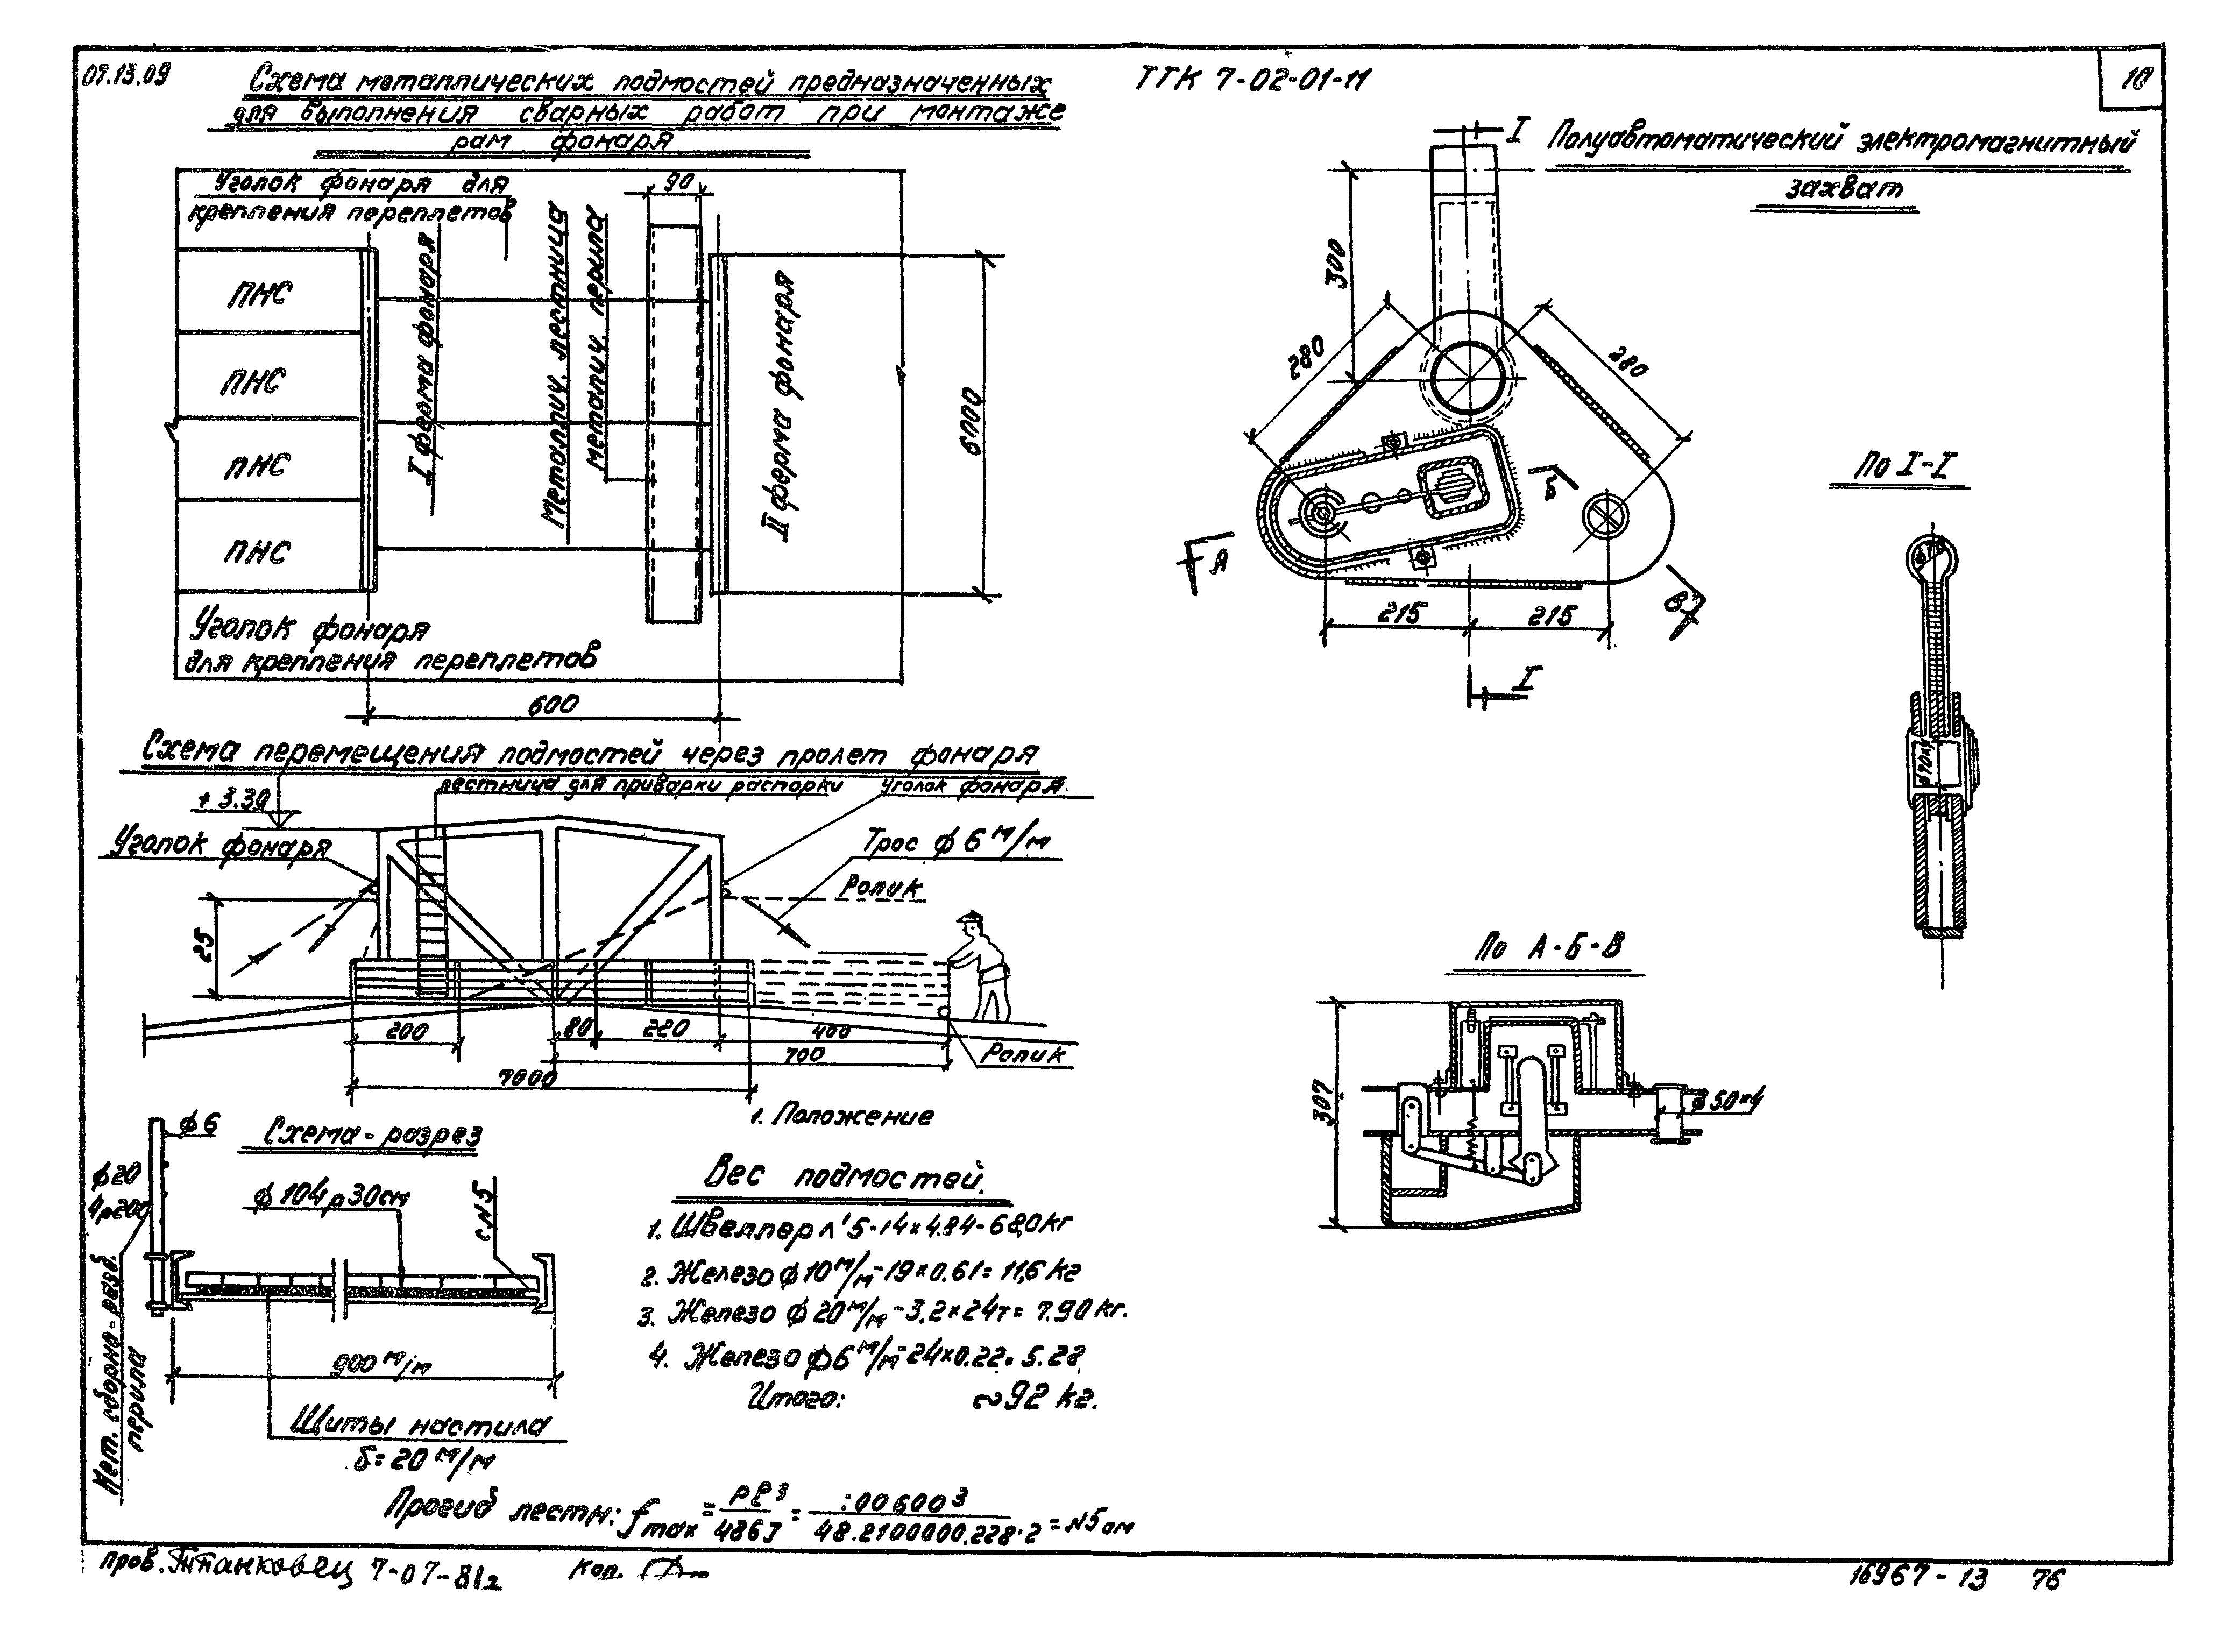 07.13.09
ТТК 7-02-01-11
10
Схема металлических подмостей предназначенных
для выполнения сварных работ при монтаже
рам фонаря
Уголок фонаря для
крепления переплетов
90
ПНС
ПНС
ПНС
ПНС
I ферма фонаря
Металлич. лестница
металич. перила
II ферма фонаря
6000
Уголок фонаря
для крепления переплетов
600
Схема перемещения подмостей через пролет фонаря
+3.30
лестница для приварки распорки
Уголок фонаря
Уголок фонаря
Трос ф 6 м/м
Ролик
25
200
80
220
400
700
7000
Ролик
1. Положение
ф6
ф20
Схема-разрез
ф 104р30см
с.N5
Мет. сборно-разб.
перила
900 м/м
Щиты настила
δ=20 м/м
Вес подмостей.
1. Швеллер л'5-14×4.84-68,0кг
2. Железо ф10м/м-19×0.61=11,6 кг
3. Железо ф20м/м-3.2×24т=7.90кг.
4. Железо ф6м/м-24×0.22=5.28
Итого: ~92 кг.
Прогиб лестн: fmax = Pℓ³/48EJ = :00600³/48.2100000.228·2 = N5см
Полуавтоматический электромагнитный
захват
I
300
280
280
А
Б
В
215
215
I
По I-I
ф70
По А-Б-В
307
ф50×4
пров.
7-07-81г
Коп.
16967-13 76